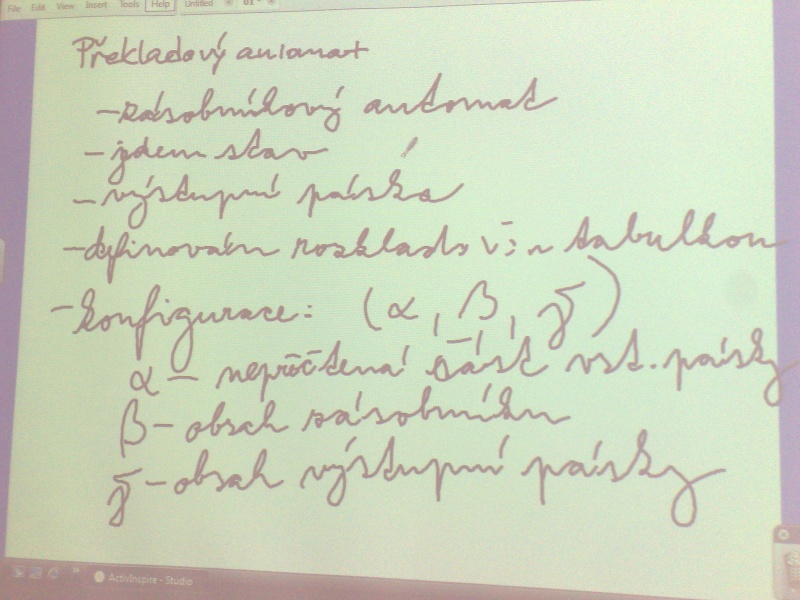 File Edit View Insert Tools Help Untitled
Překladový automat
- zásobníkový automat
- jeden stav
- výstupní páska
- definován rozkladovou tabulkou
- konfigurace: (α, β, γ)
α - nepřečtená část vst. pásky
β - obsah zásobníku
γ - obsah výstupní pásky
ActivInspire - Studio